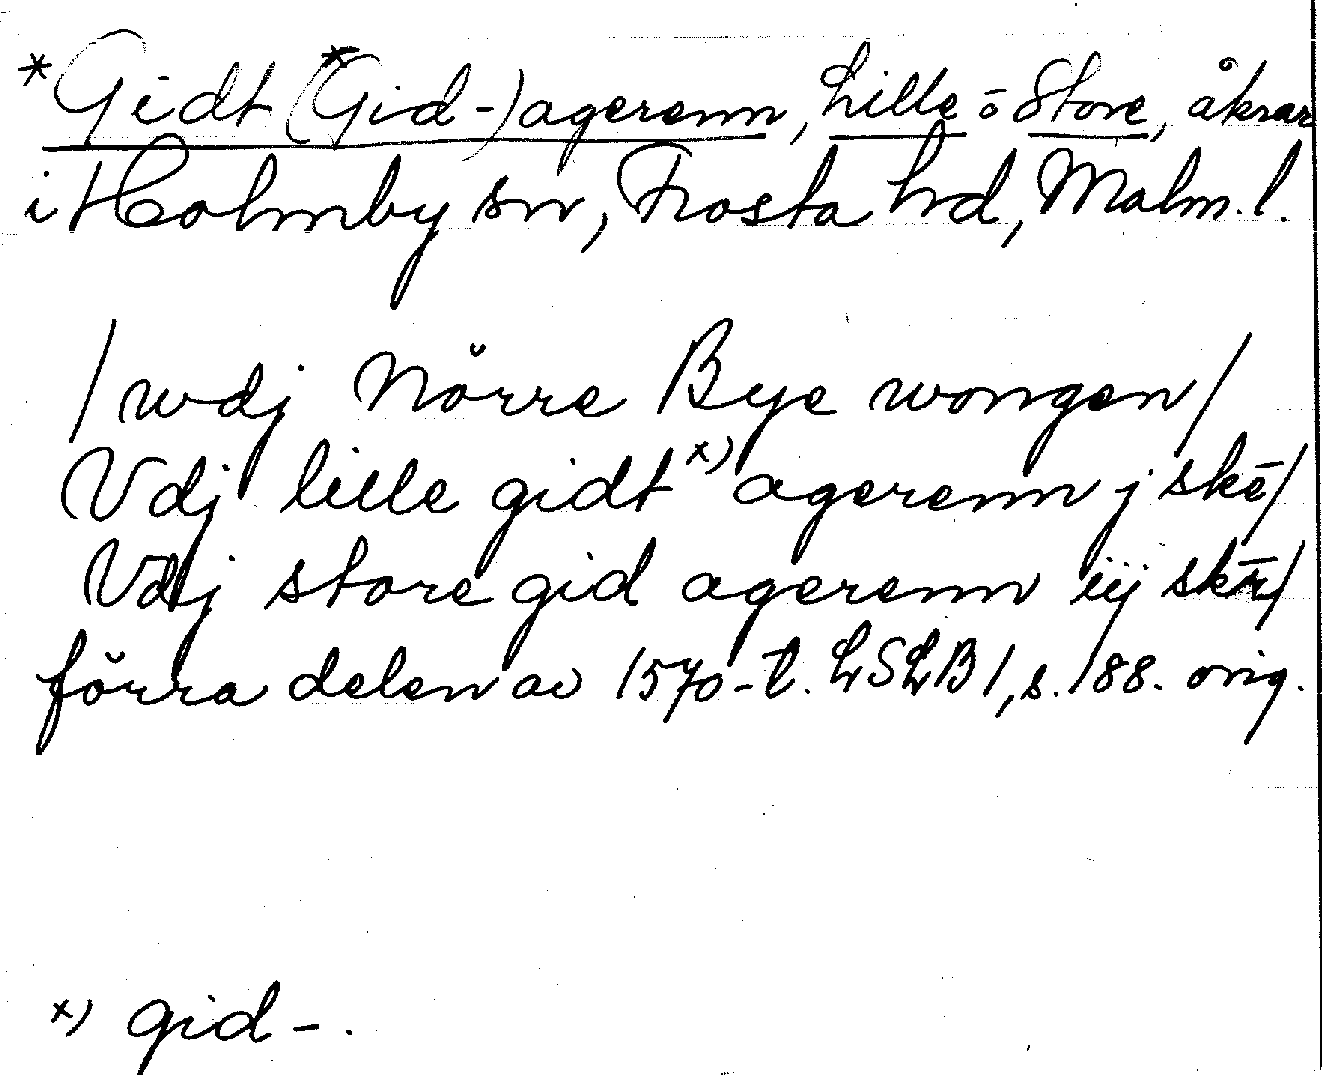 *Gidt (*Gid-) agerenn, Lille- o Store, åkrar
i Holmby sn, Frosta hd, Malm. l.
/ wdj Nörre Bye wongen /
Vdj lille gidt x) agerenn j skē/
Vdj store gid agerenn iij skēr/
förra delen av 1570-t. LSLB 1, s. 188. orig.
x) gid-.